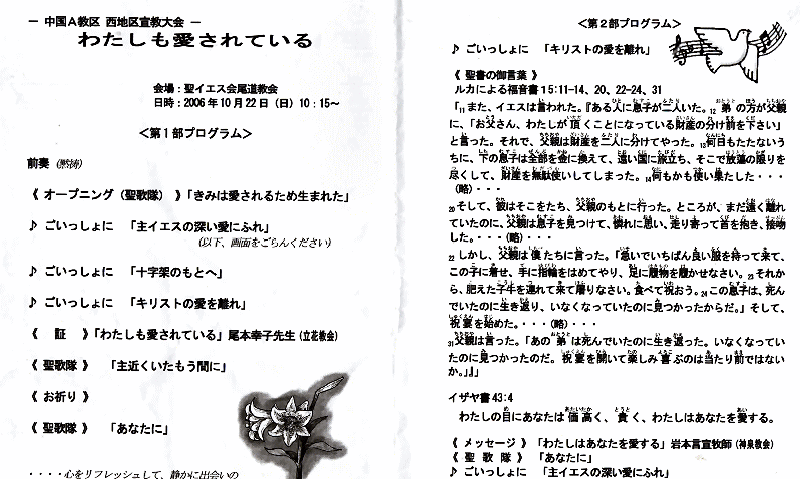 － 中国Ａ教区 西地区宣教大会 －
わたしも愛されている
会場：聖イエス会尾道教会
日時：2006年10月22日（日）10：15～
＜第１部プログラム＞
前奏（黙祷）
《 オープニング（聖歌隊） 》「きみは愛されるため生まれた」
♪ ごいっしょに 「主イエスの深い愛にふれ」
（以下、画面をごらんください）
♪ ごいっしょに 「十字架のもとへ」
♪ ごいっしょに 「キリストの愛を離れ」
《 証 》「わたしも愛されている」尾本幸子先生（立花教会）
《 聖歌隊 》 「主近くいたもう間に」
《 お祈り 》
《 聖歌隊 》 「あなたに」
・・・・心をリフレッシュして、静かに出会いの
＜第２部プログラム＞
♪ ごいっしょに 「キリストの愛を離れ」
《 聖書の御言葉 》
ルカによる福音書15:11-14、20、22-24、31
「11また、イエスは言われた。『ある人に息子が二人いた。12 弟の方が父親
に、「お父さん、わたしが頂くことになっている財産の分け前を下さい」
と言った。それで、父親は財産を二人に分けてやった。13何日もたたないう
ちに、下の息子は全部を金に換えて、遠い国に旅立ち、そこで放蕩の限りを
尽くして、財産を無駄使いしてしまった。14何もかも使い果たした・・・
（略）・・・
20そして、彼はそこをたち、父親のもとに行った。ところが、まだ遠く離れ
ていたのに、父親は息子を見つけて、憐れに思い、走り寄って首を抱き、接吻
した。・・・（略）・・・
22 しかし、父親は僕たちに言った。「急いでいちばん良い服を持って来て、
この子に着せ、手に指輪をはめてやり、足に履物を履かせなさい。23それか
ら、肥えた子牛を連れて来て屠りなさい。食べて祝おう。24この息子は、死ん
でいたのに生き返り、いなくなっていたのに見つかったからだ。」そして、
祝宴を始めた。・・・（略）・・・
31父親は言った。「あの弟は死んでいたのに生き返った。いなくなってい
たのに見つかったのだ。祝宴を開いて楽しみ喜ぶのは当たり前ではない
か。」』」
イザヤ書43:4
わたしの目にあなたは価高く、貴く、わたしはあなたを愛する。
《 メッセージ 》「わたしはあなたを愛する」岩本言宣牧師（神泉教会）
《 聖 歌 隊 》 「あなたに」
♪ ごいっしょに 「主イエスの深い愛にふれ」